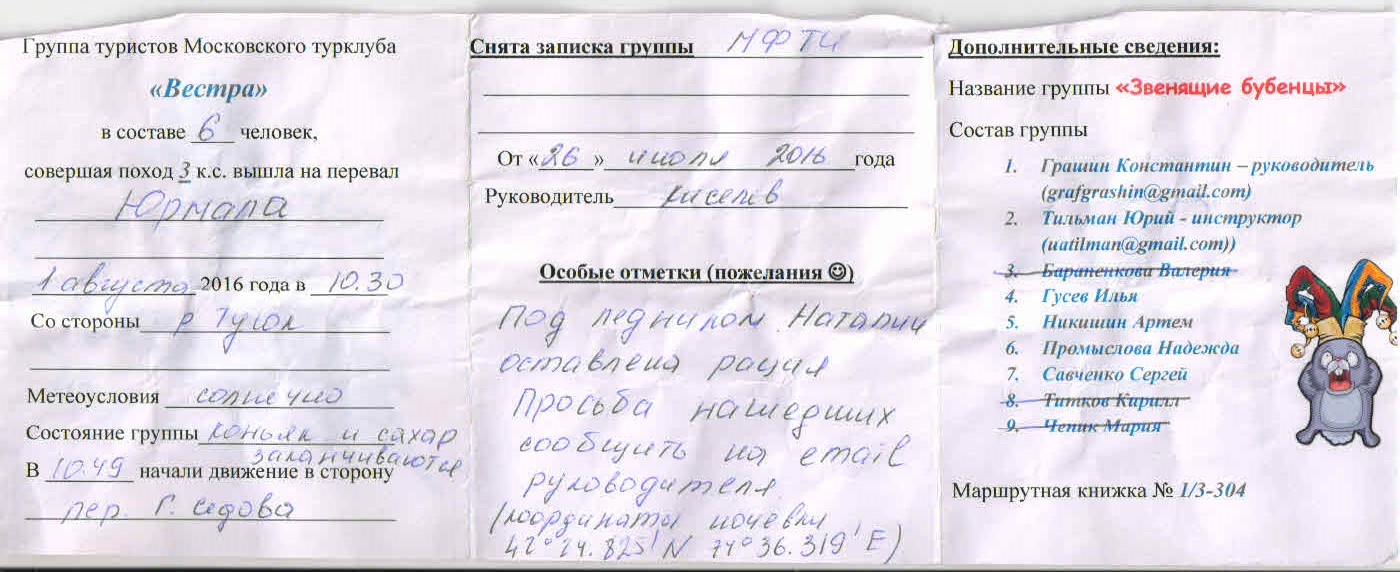 Группа туристов Московского турклуба
«Вестра»
в составе 6 человек,
совершая поход 3 к.с. вышла на перевал
Юрмала
1 августа 2016 года в 10.30
Со стороны р Тугок
Метеоусловия солнечно
Состояние группы коньяк и сахар
заканчиваются
В 10.49 начали движение в сторону
пер. Г. Седова
Снята записка группы МФТИ
От «26» июля 2016 года
Руководитель Киселёв
Особые отметки (пожелания ☺)
Под ледником Наталии
оставлена рация
Просьба нашедших
сообщить на email
руководителя
(координаты ночевки
42° 24.825' N 74° 36.319' E)
Дополнительные сведения:
Название группы «Звенящие бубенцы»
Состав группы
1. Грашин Константин – руководитель
(grafgrashin@gmail.com)
2. Тильман Юрий - инструктор
(uatilman@gmail.com))
3. Барапенкова Валерия
4. Гусев Илья
5. Никишин Артем
6. Промыслова Надежда
7. Савченко Сергей
8. Титков Кирилл
9. Чепик Мария
Маршрутная книжка № 1/3-304